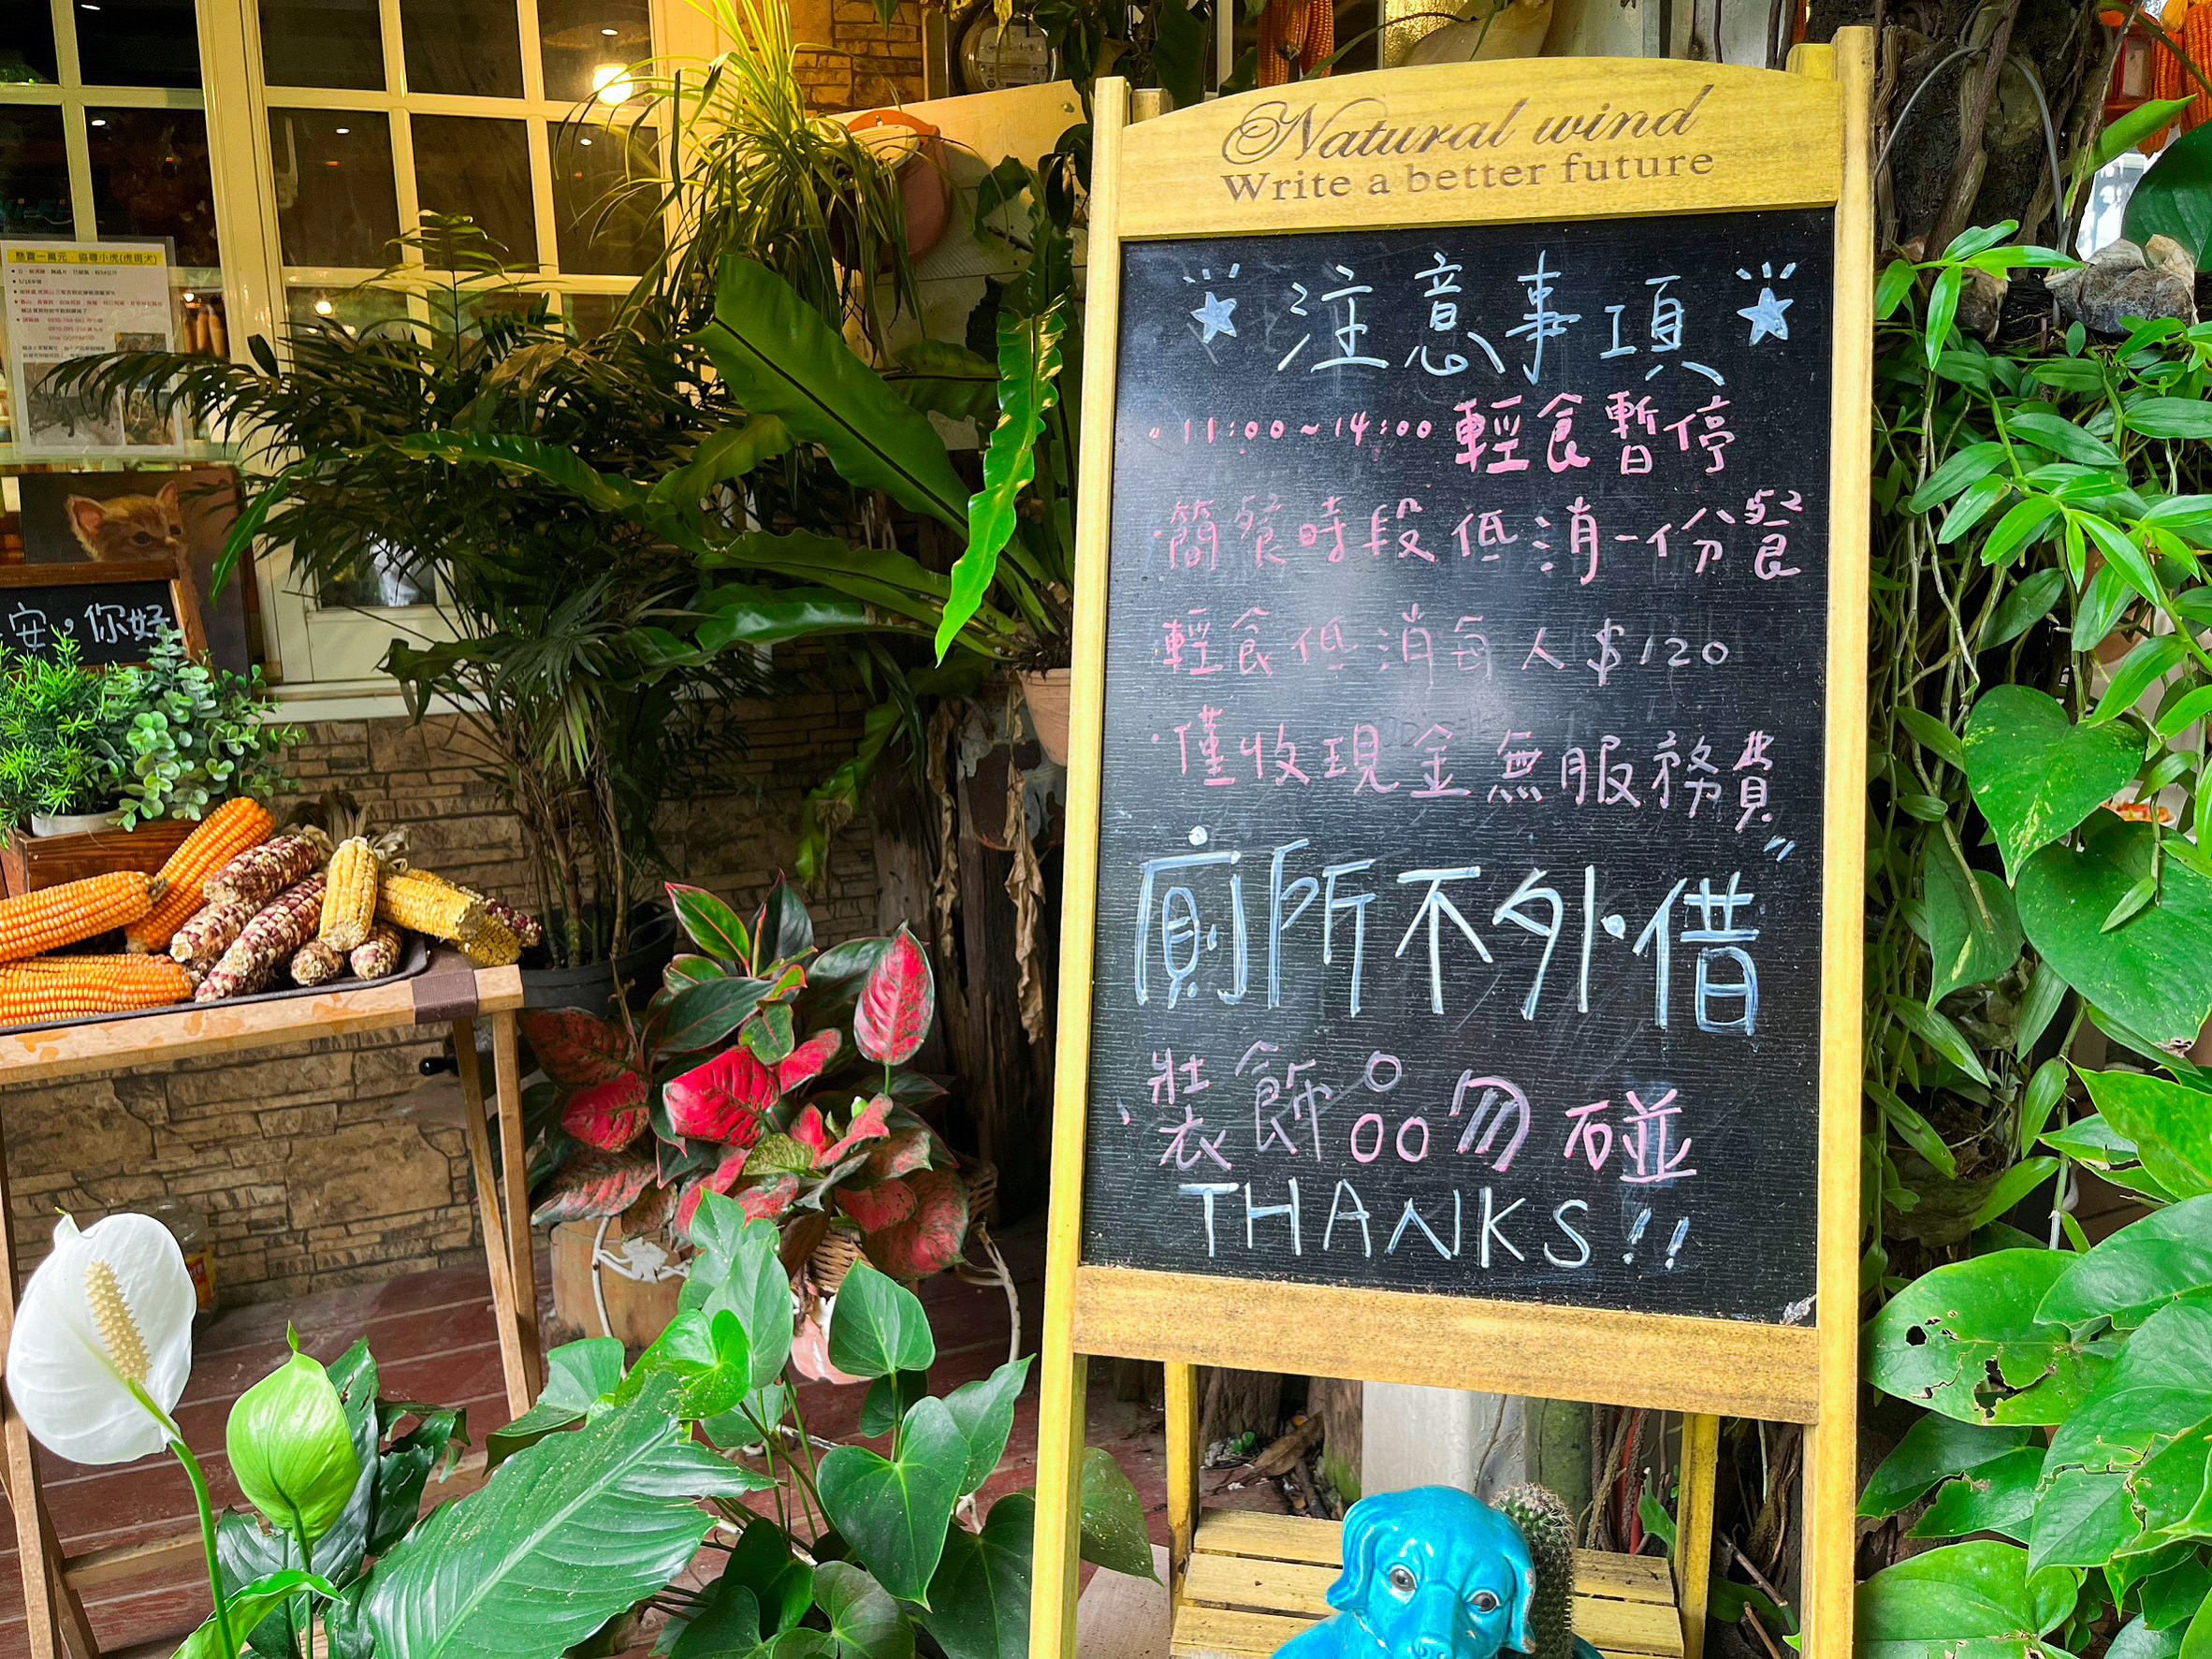 Natural wind
Write a better future
注意事項
11:00~14:00 輕食暫停
簡餐時段低消一份餐
輕食低消每人$120
僅收現金無服務費
廁所不外借
裝飾品勿碰
THANKS!!
懸賞一萬元 協尋小虎(虎斑犬)
安，你好